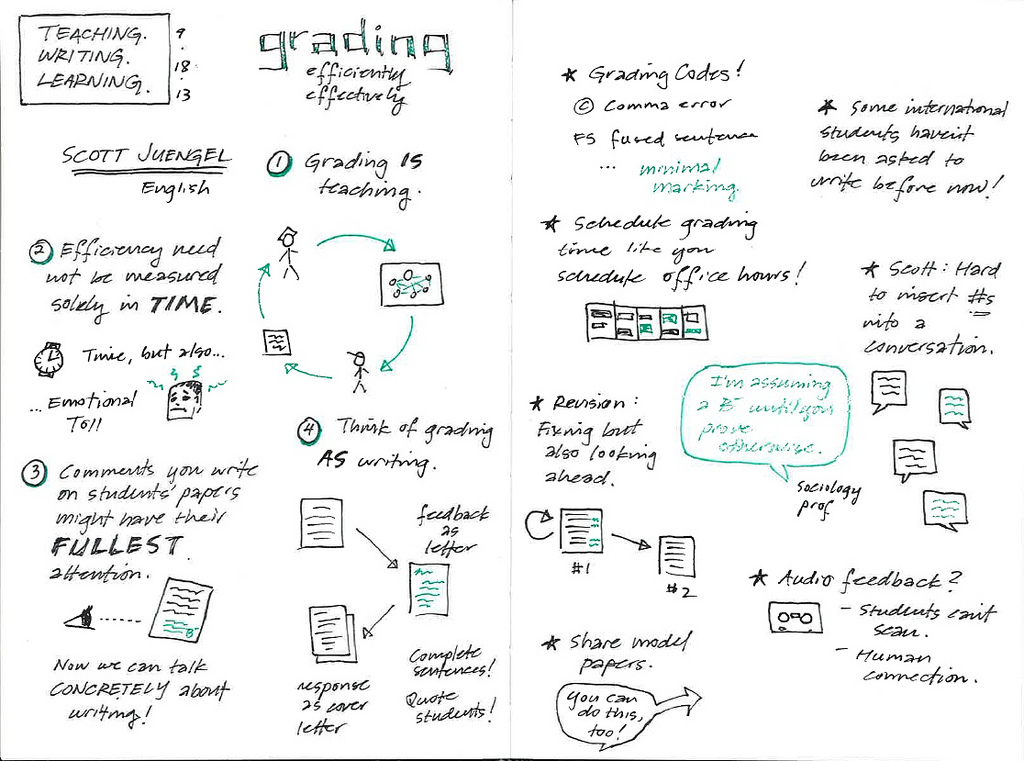 TEACHING.
WRITING.
LEARNING.
9
18
13
grading
efficiently
effectively
SCOTT JUENGEL
English
1 Grading IS
teaching.
2 Efficiency need
not be measured
solely in TIME.
Time, but also...
... Emotional
Toll
3 Comments you write
on students' papers
might have their
FULLEST
attention.
B-
Now we can talk
CONCRETELY about
writing!
4 Think of grading
AS writing.
feedback
as
letter
response
as cover
letter
Complete
sentences!
Quote
students!
★ Grading Codes!
© Comma error
FS fused sentence
... minimal
marking.
★ Some international
students haven't
been asked to
write before now!
★ Schedule grading
time like you
schedule office hours!
★ Scott: Hard
to insert #s
into a
conversation.
★ Revision:
Fixing but
also looking
ahead.
#1
#2
I'm assuming
a B- until you
prove
otherwise.
Sociology
prof
★ Audio feedback?
- Students can't
scan.
- Human
connection.
★ Share model
papers.
You can
do this,
too!